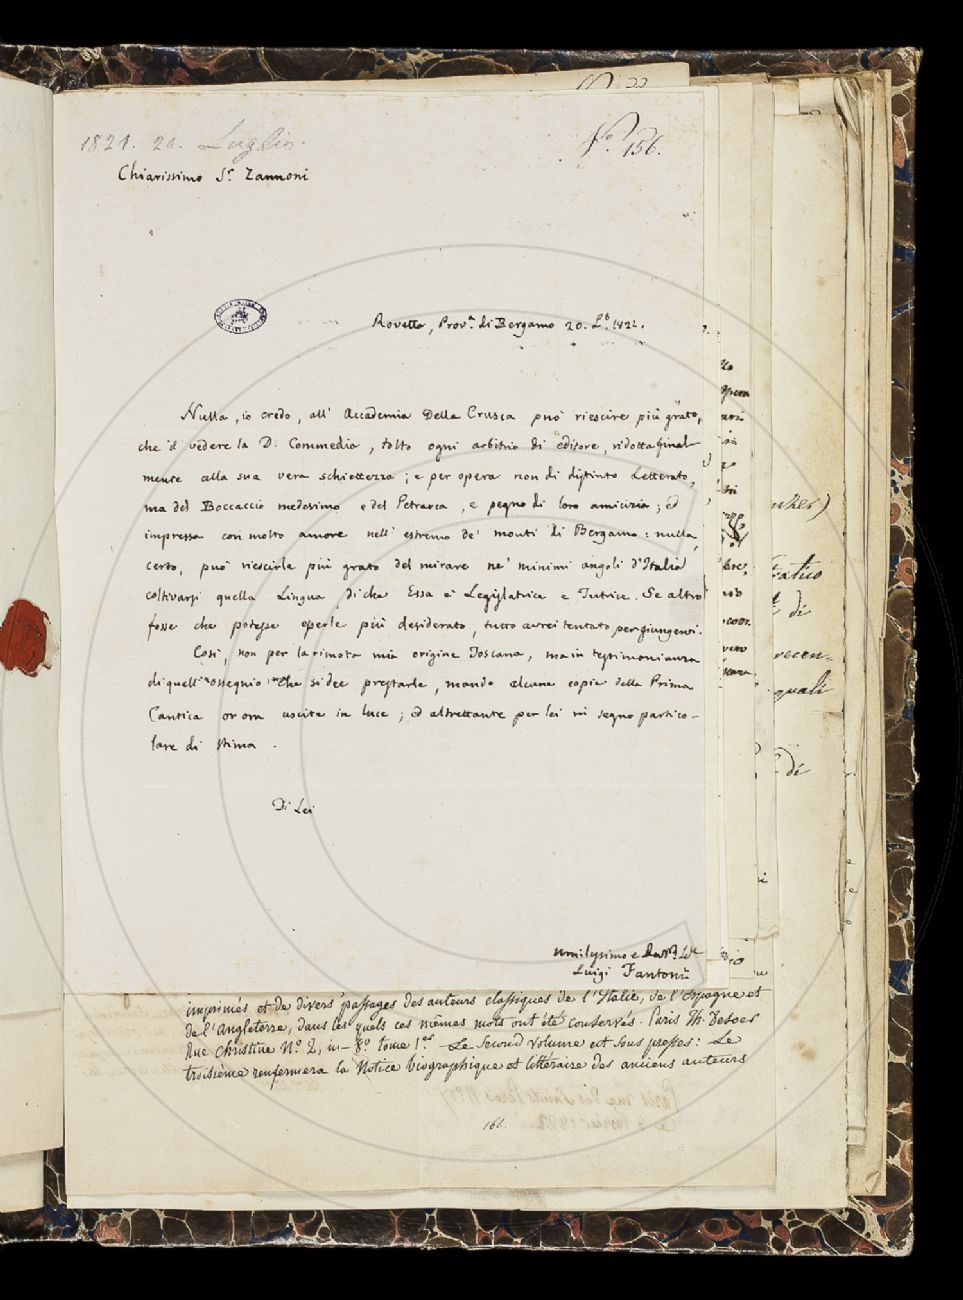 1821. 20. Luglio.
N.o 156.
Chiarissimo S.r Zannoni
Rovetta, Prov.a di Bergamo 20. L.o 1821.
Nulla, io credo, all' Accademia Della Crusca può riescire più grato,
che 'l vedere la D. Commedia, tolto ogni arbitrio di editore, ridotta final-
mente alla sua vera schiettezza; e per opera non di distinto Letterato,
ma del Boccaccio medesimo e del Petrarca, e pegno di loro amicizia; ed
impressa con molto amore nell' estremo de' monti di Bergamo: nulla,
certo, può riescirle più grato del mirare ne' minimi angoli d'Italia
coltivarsi quella Lingua, di che Essa è Legislatrice e Tutrice. Se altro
fosse che potesse esserle più desiderato, tutto avrei tentato per giungervi.
Così, non per la rimota mia origine Toscana, ma in testimonianza
di quell' ossequio che si dee prestarle, mando alcune copie della Prima
Cantica or ora uscite in luce; ed altrettante per lei in segno partico-
lare di stima.
Di Lei
umilissimo e
Luigi Fantoni
imprimés et de divers passages des auteurs classiques de l'Italie, de l'Espagne et
de l'Angleterre, dans lesquels ces mêmes mots ont été conservés. Paris Th. Desoer
Rue Christine N.o 2, in-8.o tome 1.er Le Second volume est sous presses: Le
troisième renfermera la Notice biographique et littéraire des anciens auteurs